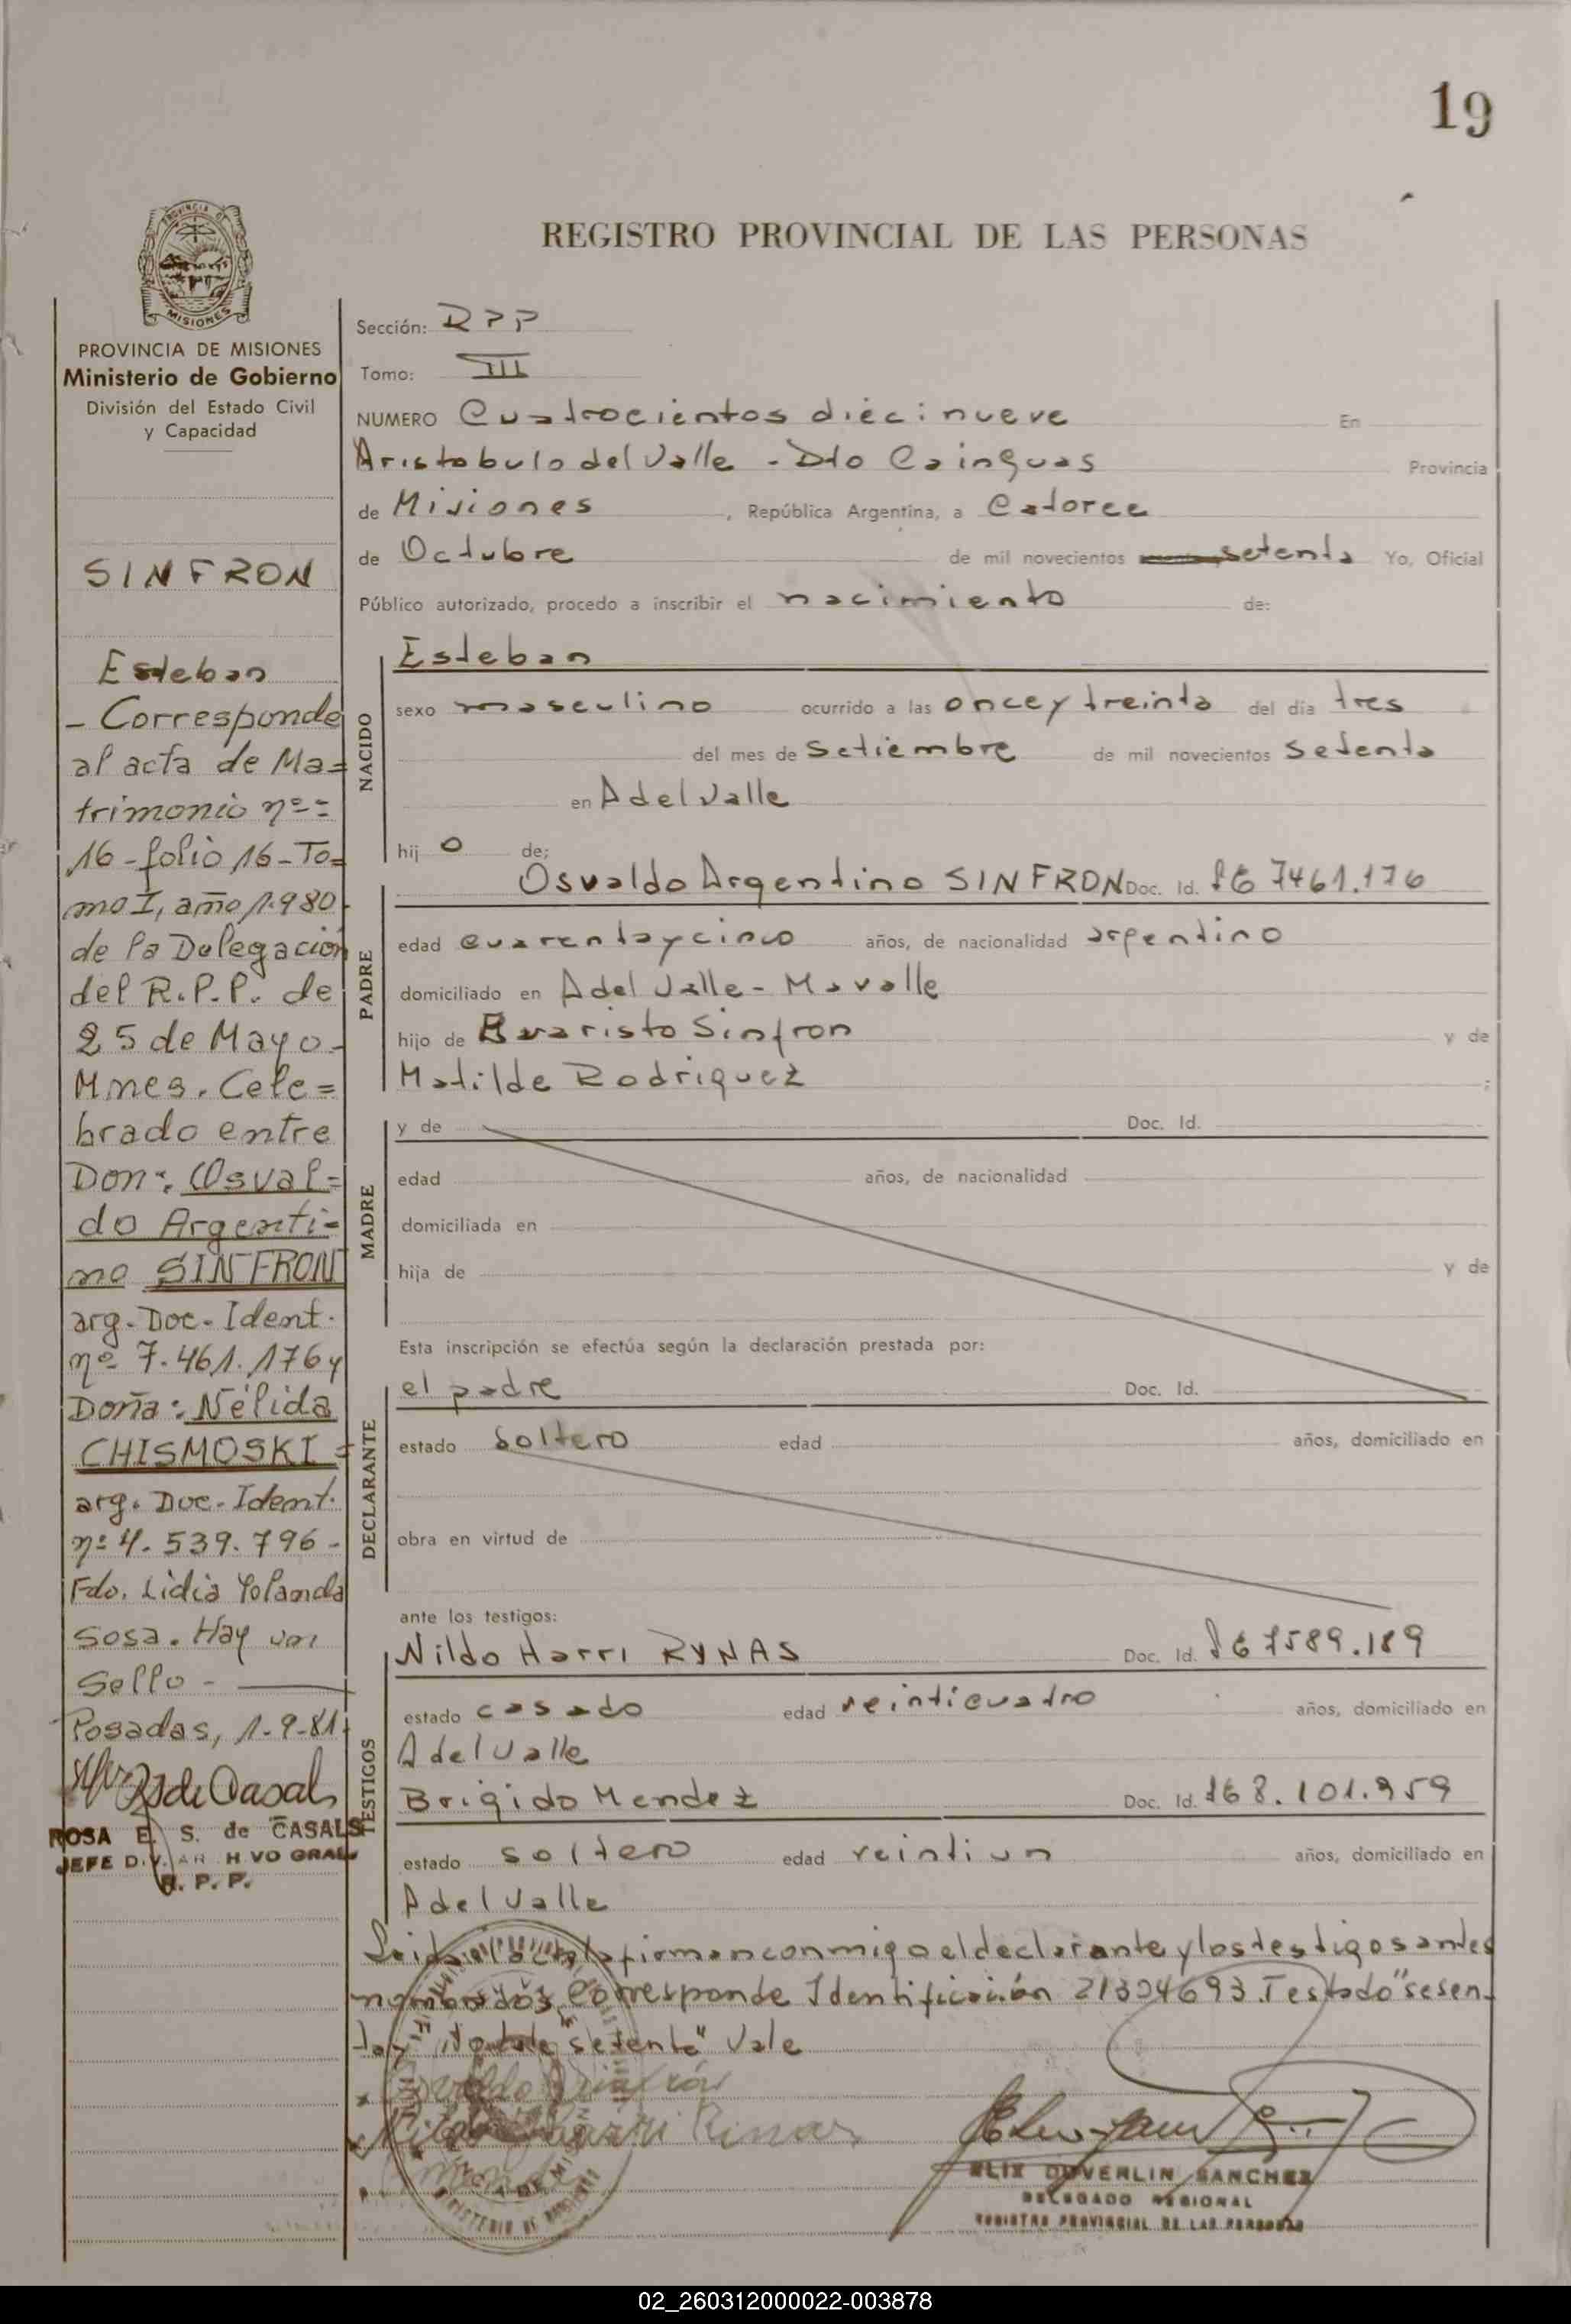 19
REGISTRO PROVINCIAL DE LAS PERSONAS
PROVINCIA DE MISIONES
Ministerio de Gobierno
División del Estado Civil
y Capacidad
SINFRON
Esteban
- Corresponde
al acta de Ma=
trimonio nº=
16-folio 16-To=
mo I, año 1.980-
de la Delegación
del R.P.P. de
25 de Mayo-
Mnes. Cele=
brado entre
Don: Osval=
do Argenti=
no SINFRON
arg. Doc. Ident.
nº 7.461.176 y
Doña: Nélida
CHISMOSKI=
arg. Doc. Ident.
nº 4.539.796-
Fdo. Lidia Yolanda
Sosa. Hay un
Sello-
Posadas, 1-9-81-
ROSA E. S. de CASALS
JEFE DIV. AR H VO GRAL
R. P. P.
Sección: RPP
Tomo: III
NUMERO Cuatrocientos diecinueve En
Aristobulo del Valle - Dto Cainguas Provincia
de Misiones, República Argentina, a Catorce
de Octubre de mil novecientos setenta Yo, Oficial
Público autorizado, procedo a inscribir el nacimiento de:
NACIDO
Esteban
sexo masculino ocurrido a las once y treinta del día tres
del mes de Setiembre de mil novecientos setenta
en A del Valle
hij o de:
PADRE
Osvaldo Argentino SINFRON Doc. Id. 7461.176
edad cuarenta y cinco años, de nacionalidad argentino
domiciliado en A del Valle - Mavalle
hijo de Evaristo Sinfron y de
Matilde Rodriguez ;
MADRE
y de Doc. Id.
edad años, de nacionalidad
domiciliada en
hija de y de
Esta inscripción se efectúa según la declaración prestada por:
DECLARANTE
el padre Doc. Id.
estado Soltero edad años, domiciliado en
obra en virtud de
ante los testigos:
TESTIGOS
Nildo Harri RYNAS Doc. Id. 7589.189
estado casado edad veinticuatro años, domiciliado en
A del Valle
Brigido Mendez Doc. Id. 8.101.959
estado soltero edad veintiun años, domiciliado en
A del Valle
Leida el acta la firman conmigo el declarante y los testigos antes
nombrados Corresponde Identificación 21304693. Testado "sesen-
ta y setenta" Vale
Osvaldo Sinfrón
Nildo Harri Rinas
ELIX DUVERLIN SANCHEZ
DELEGADO REGIONAL
REGISTRO PROVINCIAL DE LAS PERSONAS
02_260312000022-003878